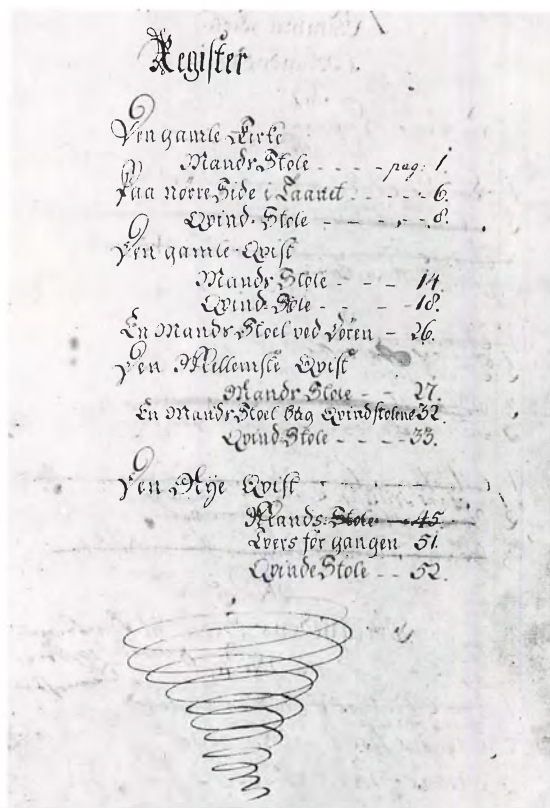 Register
Den gamle Kirke
Mands Stole - - - - pag: 1.
Paa Nørre Side i Taarnet - - - - 6.
Qvind-Stole - - - - - 8.
Den gamle Qvist
Mands Stole - - - 14.
Qvind-Stole - - - - 18.
En Mands Stoel ved Døren - 26.
Den Mellemste Qvist
Mands Stole - - 27.
En Mands Stoel bag Qvindstolene 32.
Qvind Stole - - - - 33.
Den Nÿe Qvist
Mands-Stole - - 45.
Tvers før gangen 51.
Qvinde Stole - - 52.